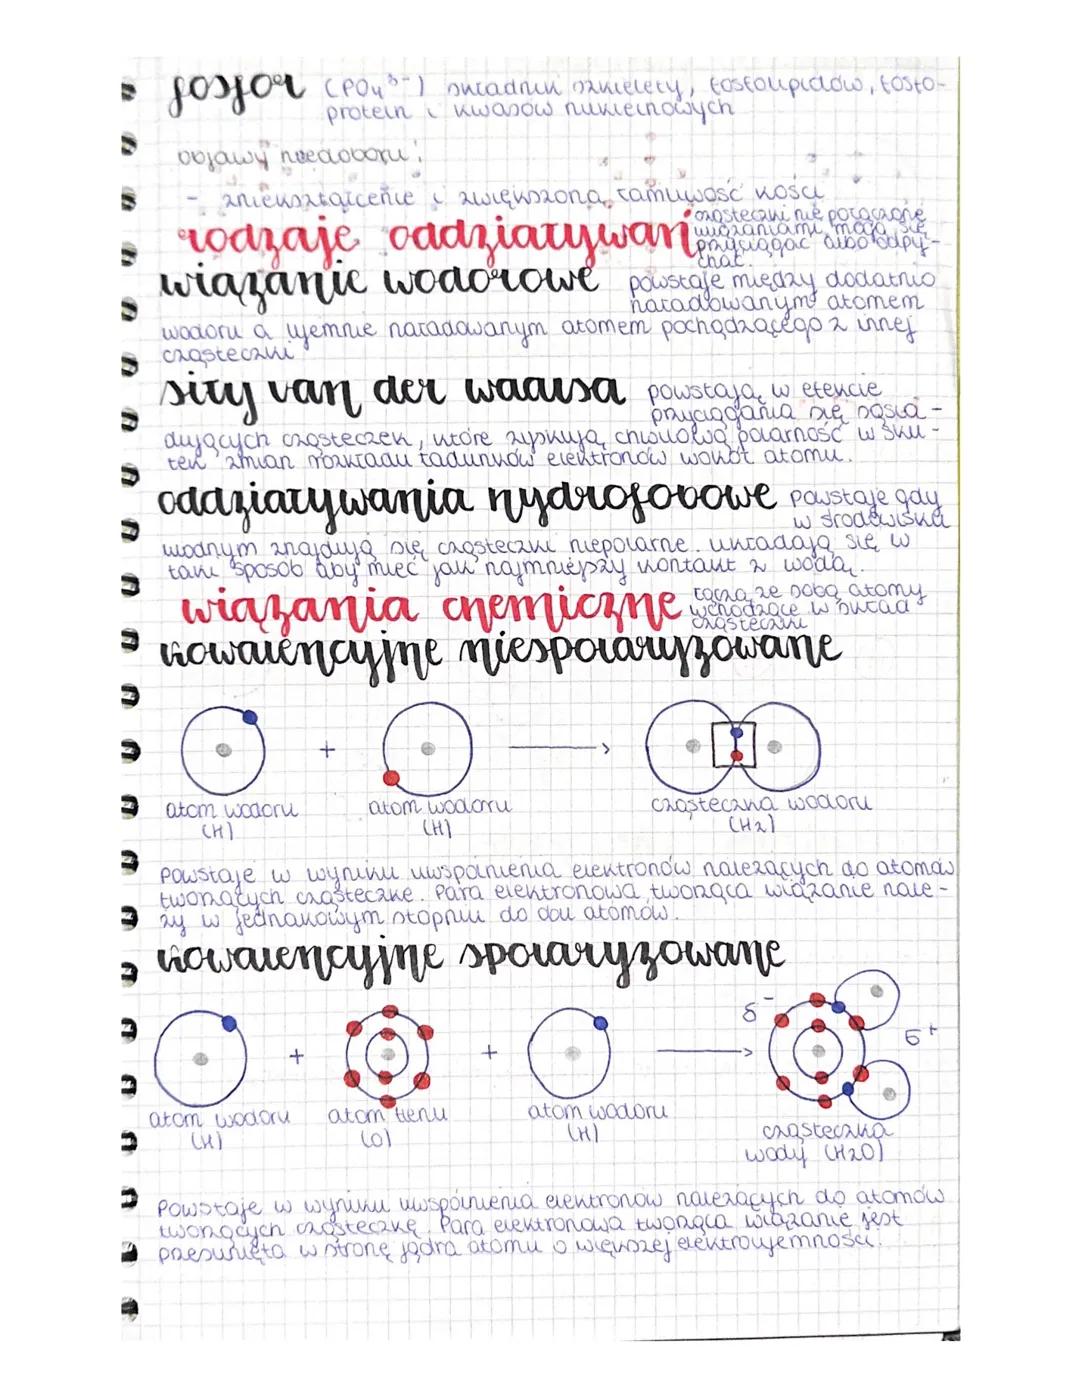 fosfor (PO4³⁻) składnik szkielety, fosfolipidów, fosfo-
protein i kwasów nukleinowych
objawy niedoboru:
- zniekształcenie i zwiększona łamliwość kości
rodzaje oddziaływań cząsteczki nie połączone
wiązaniami, mogą się
przyciągać albo odpy-
chać.
wiązanie wodorowe powstaje między dodatnio
naładowanym atomem
wodoru a ujemnie naładowanym atomem pochądzącego z innej
cząsteczki
siły van der waalsa powstają w efekcie
przyciągania się sąsia-
dujących cząsteczek, które zyskują chwilową polarność w sku-
tek zmian rozkładu ładunków elektronów wokół atomu.
oddziaływania hydrofobowe powstaje gdy
w środowisku
wodnym znajdują się cząsteczki niepolarne. układają się w
taki sposób aby mieć jak najmniejszy kontakt z wodą.
wiązania chemiczne łączą ze sobą atomy
wchodzące w skład
cząsteczki
kowalencyjne niespolaryzowane
+
atom wodoru atom wodoru cząsteczka wodoru
(H) (H) (H2)
Powstaje w wyniku uwspólnienia elektronów należących do atomów
tworzących cząsteczkę. Para elektronowa tworząca wiązanie nale-
ży w jednakowym stopniu do dou atomów.
kowalencyjne spolaryzowane
δ⁻
+ + δ⁺
atom wodoru atom tlenu atom wodoru
(H) (O) (H)
cząsteczka
wody (H2O)
Powstaje w wyniku uwspólnienia elektronów należących do atomów
tworzących cząsteczkę. Para elektronowa tworząca wiązanie jest
przesunięta w stronę jądra atomu o większej elektroujemności.